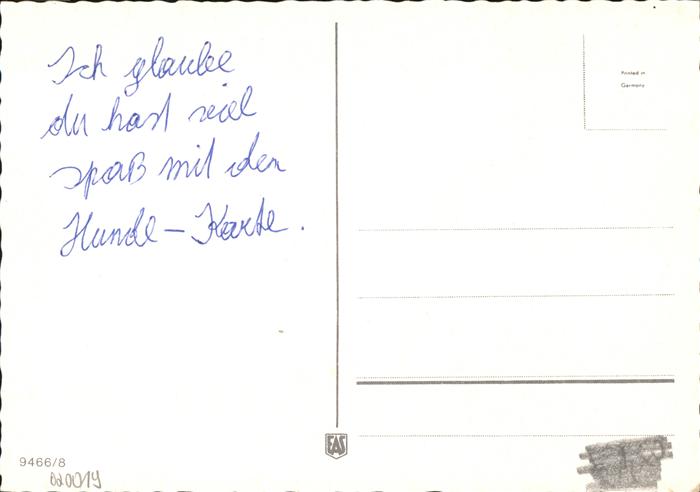 Ich glaube
du hast viel
spaß mit den
Hunde – Karte.
Printed in
Germany
EAS
9466/8
020019